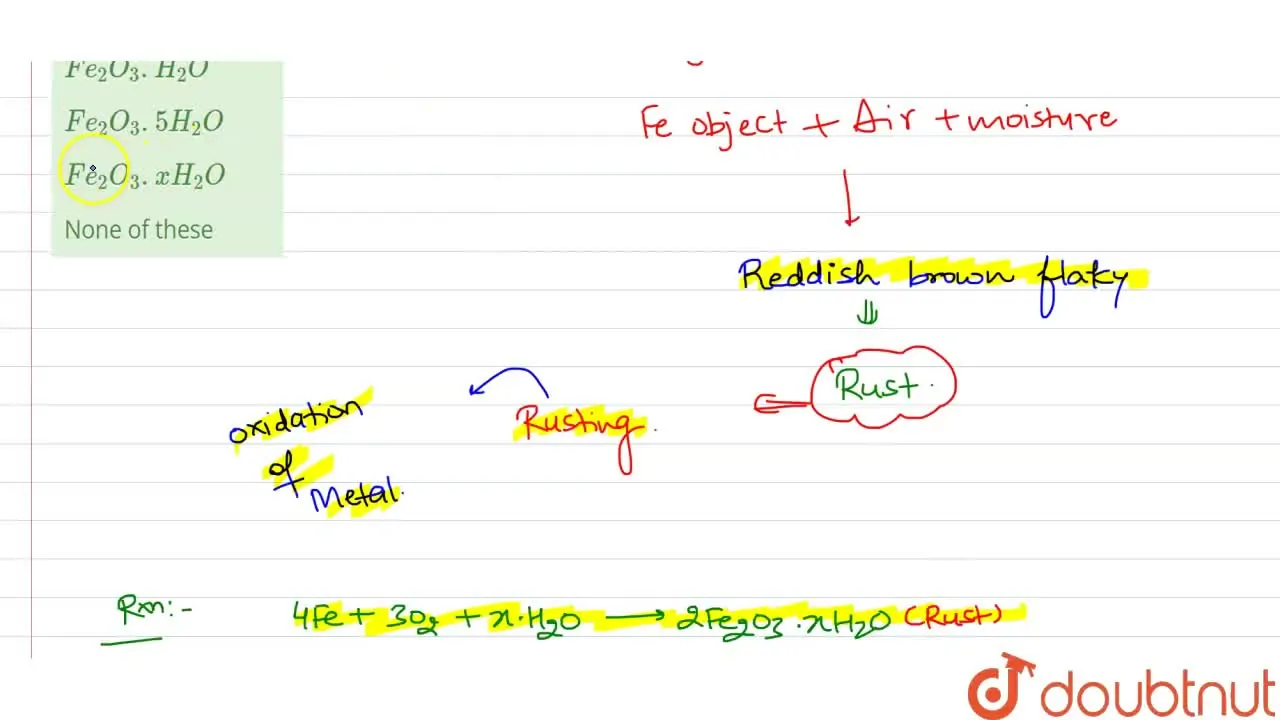 Fe₂O₃. H₂O
Fe₂O₃. 5H₂O
Fe₂O₃. xH₂O
None of these
Fe object + Air + moisture
Reddish brown flaky
Rust.
Rusting.
oxidation
of
Metal.
Rxn:-
4Fe + 3O₂ + x·H₂O → 2Fe₂O₃·xH₂O (Rust)
doubtnut